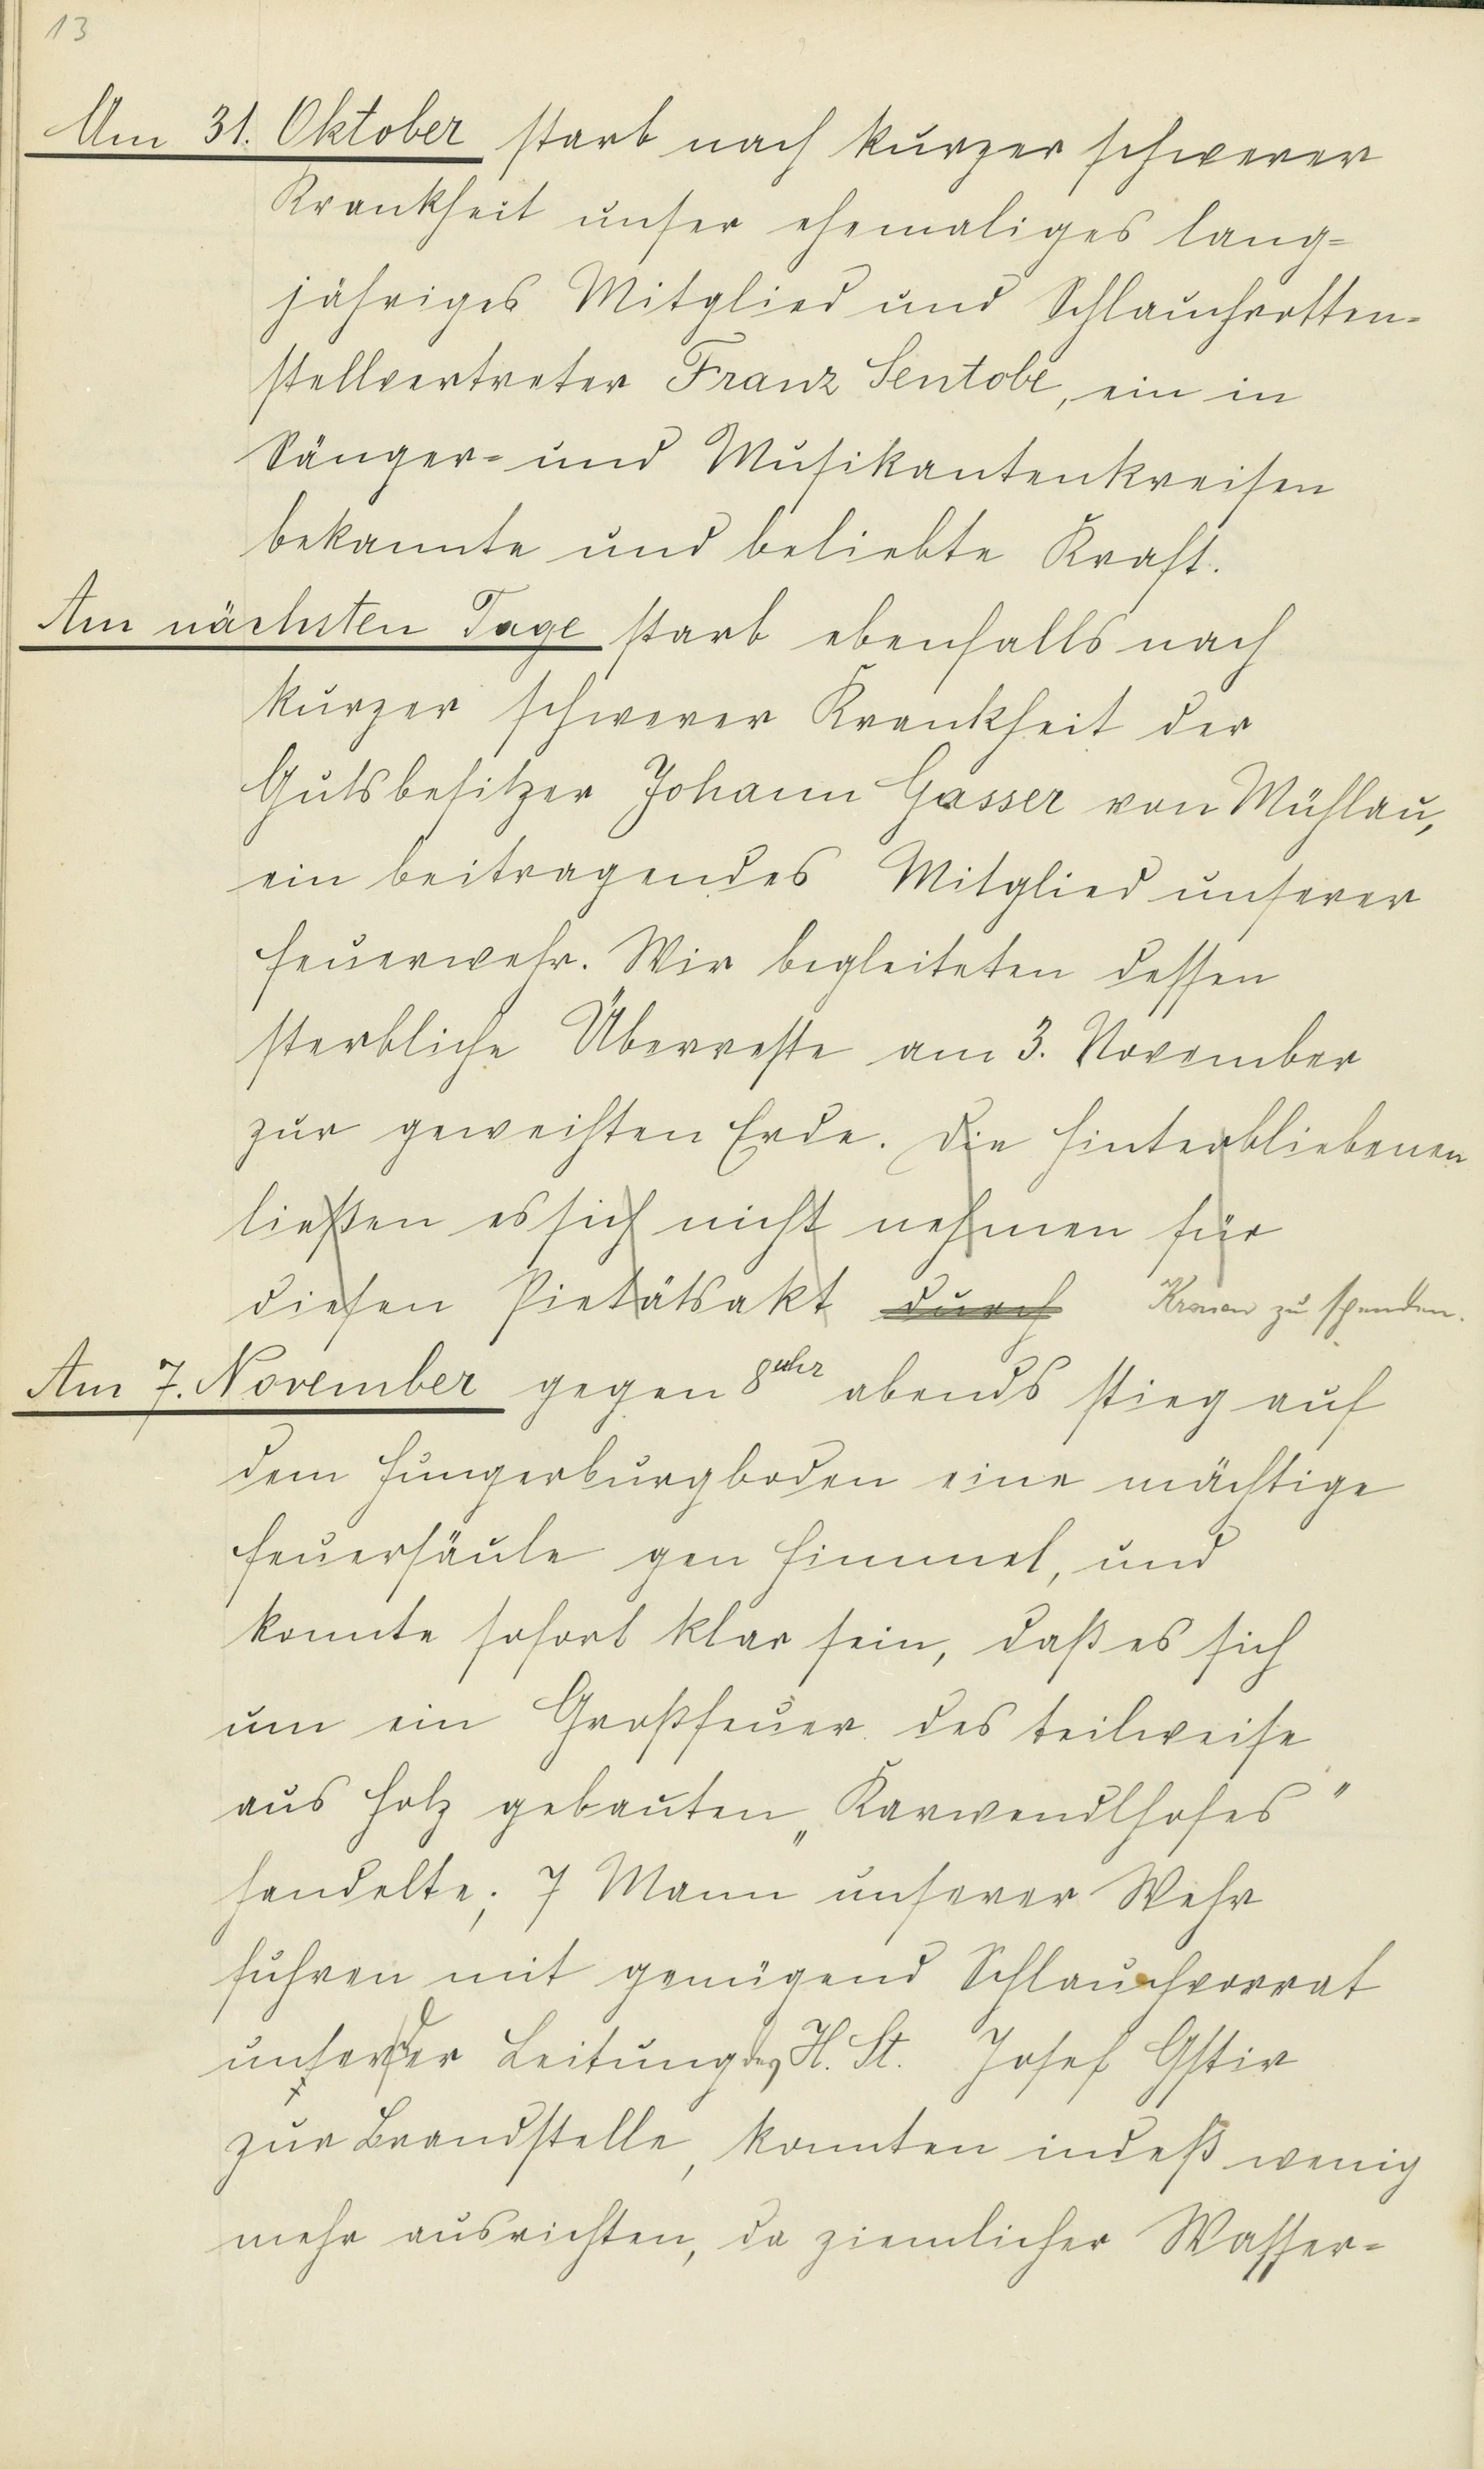 13
Am 31. Oktober starb nach kurzer schwerer
Krankheit unser ehemaliges lang=
jähriges Mitglied und Schlauchrotten=
stellvertreter Franz Sentobe, ein in
Sänger= und Musikantenkreisen
bekannte und beliebte Kraft.
Am nächsten Tage starb ebenfalls nach
kurzer schwerer Krankheit der
Gutsbesitzer Johann Gasser von Mühlau,
ein beitragendes Mitglied unserer
Feuerwehr. Wir begleiteten dessen
sterbliche Überreste am 3. November
zur geweihten Erde. Die Hinterbliebenen
ließen es sich nicht nehmen für
diesen Pietätsakt durch Kronen zu spenden.
Am 7. November gegen 8 uhr abends stieg auf
dem Hungerburgboden eine mächtige
Feuersäule gen Himmel, und
konnte sofort klar sein, daß es sich
um ein Großfeuer des teilweise
aus Holz gebauten „Karwendlhofes"
handelte; 7 Mann unserer Wehr
fuhren mit genügend Schlauchvorrat
unter der Leitung des H. St. Josef Gstir
zur Brandstelle, konnten indeß wenig
mehr ausrichten, da ziemlicher Wasser=